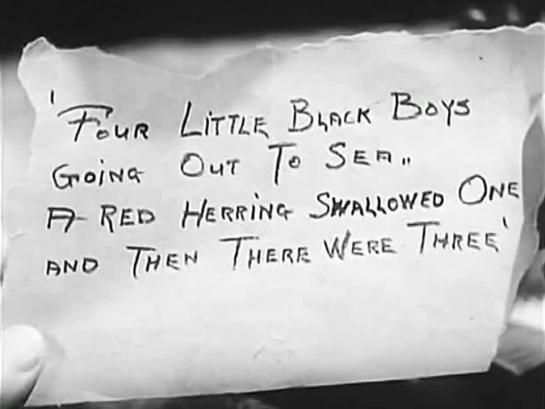 'Four Little Black Boys
Going Out To Sea..
A Red Herring Swallowed One
And Then There Were Three'